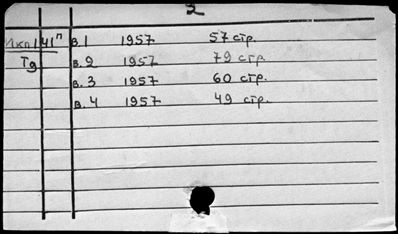 2
в.1 1957 57 стр.
Тд в.2 1957 79 стр.
в.3 1957 60 стр.
в.4 1957 49 стр.